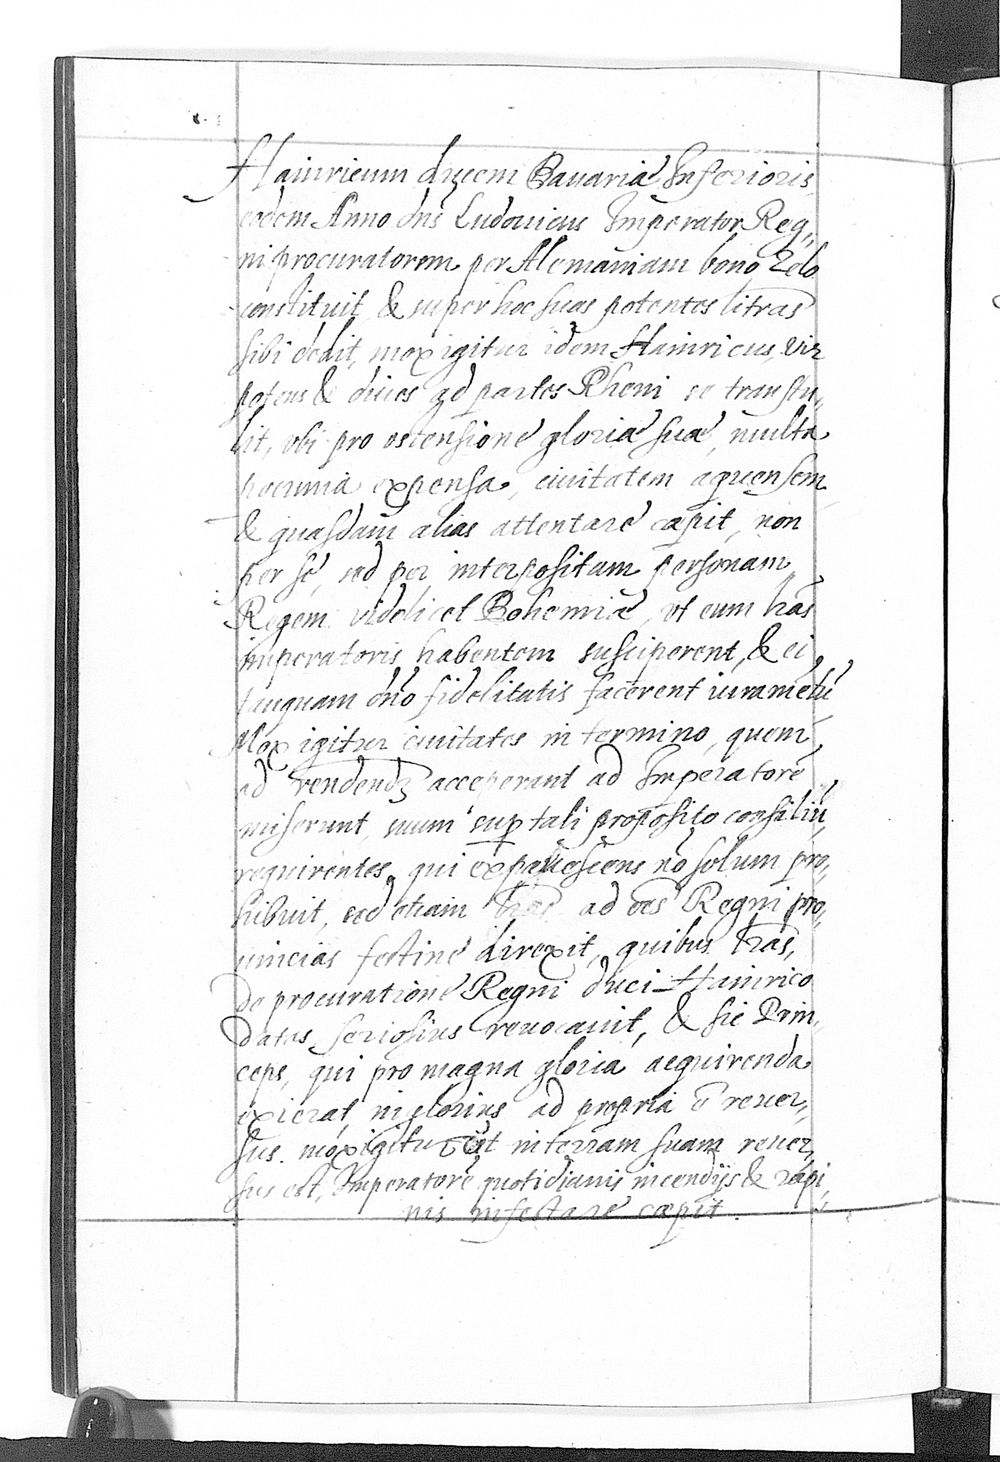 Hainricum ducem Bauariæ Inferioris,
eodem Anno dns Ludouicus Imperator Reg„
ni procuratorem per Alemaniam bono Zelo
constituit, & super hoc suas patentes litras
sibi dedit, mox igitur idem Hainricus, vir
potens & diues ad partes Rheni se transtu„
lit, vbi pro ostensione gloriæ suæ, multa
pecunia expensa, ciuitatem aquensem
& quasdam alias attentare cæpit, non
per se, sed per interpositam personam,
Regem videlicet Bohemiæ, vt eum lras
imperatoris habentem susciperent, & ei
tanquam dno fidelitatis facerent iurametu
Mox igitur ciuitates in termino, quem
ad rendendz acceperant ad Imperatore
miserunt, suum sup tali proposito consiliu
requirentes, qui expauescens no solum pro„
hibuit, sed etiam lras ad oes Regni pro„
uincias festine direxit, quibus lras,
de procuratione Regni duci Hainrico
datas seriosius reuocauit, & sic Prin„
ceps, qui pro magna gloria acquirenda
exierat, inglorius ad propria e reuer„
sus. mox igitur vt in terram suam reuer„
sus est, Imperatore quotidianis incendijs & rapi„
nis infestare cæpit.